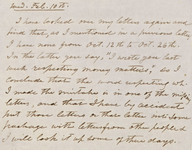 Wed. Feb. 10th.
I have looked over my letters again and
find that, as I mentioned in a previous letter,
I have none from Oct. 12th to Oct. 26th.
In the letter you say, "I wrote you last
week respecting money matters", so I
conclude that the
I made the mistake is in one of the missing
letters, and that I have by accident
put those letters or three letters into some
package with letters from other people.
I will look it up some of these days.